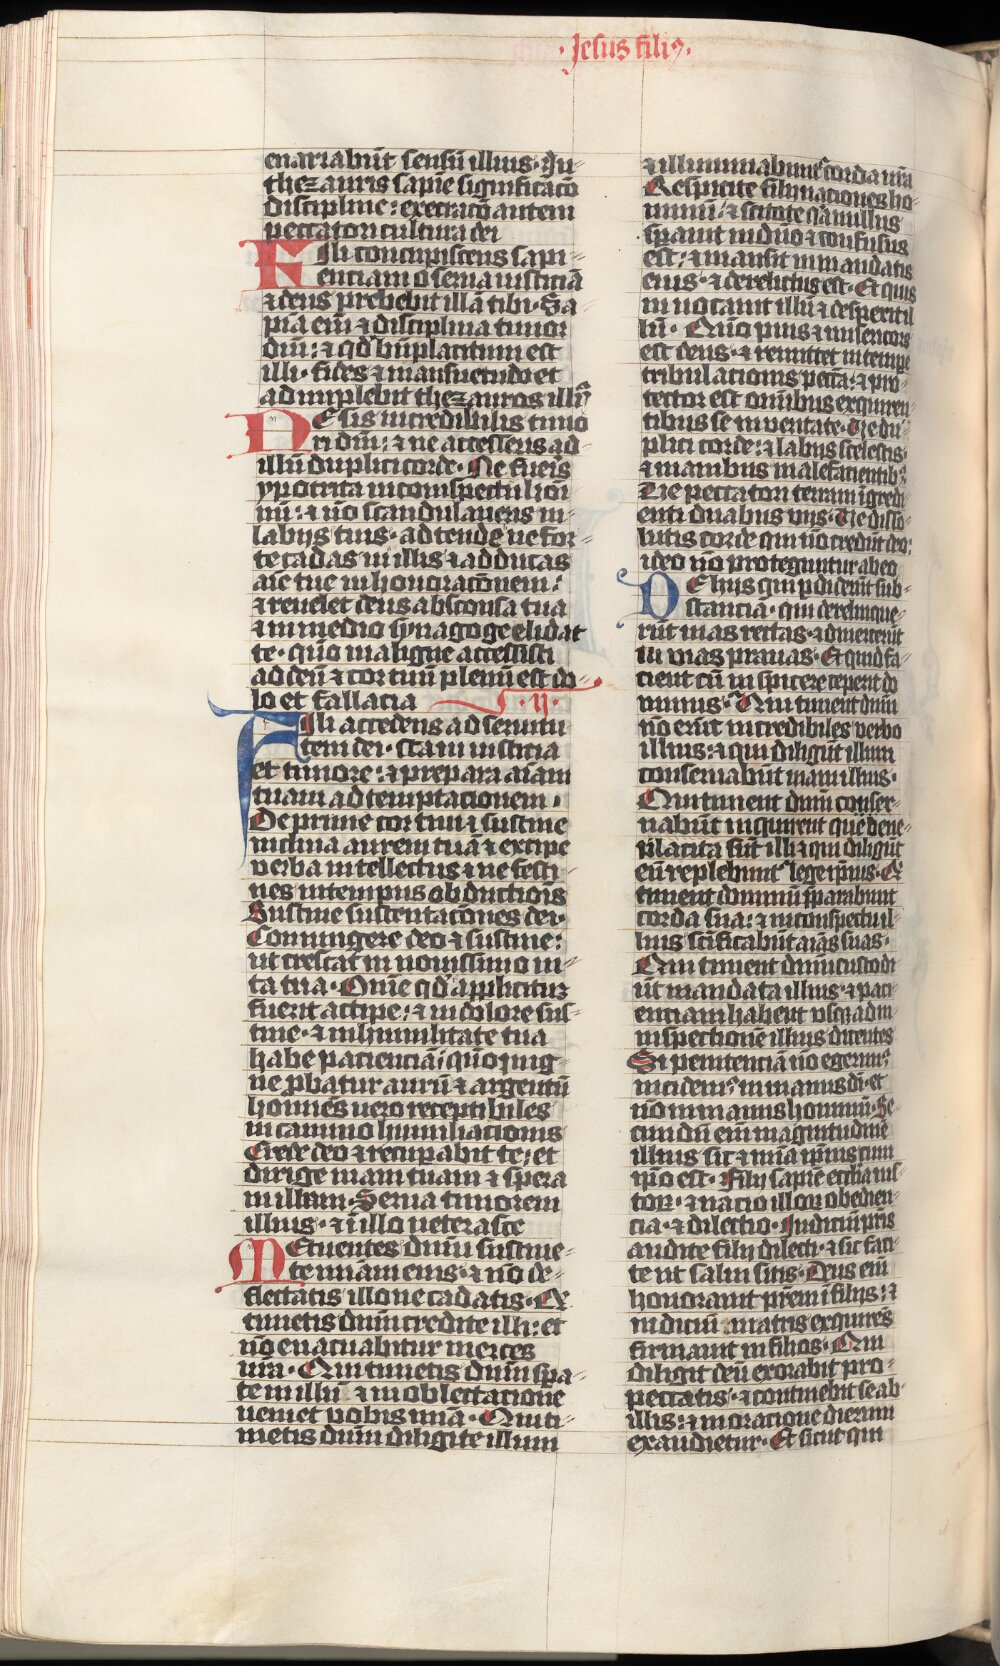 · Jesus fili9 ·
enarrabūt sensū illius · In
thezauris sapīe significacō
discipline : execracō autem
peccatori cultura dei
Fili concupiscens sapi-
enciam oserua iusticiā
⁊ deus prebebit illā tibi · Sa
pīa eīn ⁊ disciplina timor
dm̄ : ⁊ qd' bn̄placitum est
illi · fides ⁊ mansuetudo et
adimplebit thezauros illi9
Ne sis incredibilis timo
ri dm̄ : ⁊ ne accesseris ad
illū duplici corde · Ne fueris
ypocrita in conspectu homi
nū : ⁊ nō scandalaueris in
labijs tuis · adtende ne for
te cadas in illis ⁊ adducas
aīe tue inhonoracōnem :
⁊ reuelet deus absconsa tua
⁊ in medio synagoge elidat
te · quō maligne accessisti
ad deū ⁊ cor tuū plenū est do
lo et fallacia · ij ·
Fili accedens ad seruitu
tem dei · sta in iusticia
et timore : ⁊ prepara aīam
tuam ad temptacionem ·
Deprime cor tuū ⁊ sustine
inclina aurem tuā ⁊ excipe
verba intellectus ⁊ ne festi
nes in tempus obductiōis
Sustine sustentacōnes dei ·
Coniungere deo ⁊ sustine :
ut crescat in nouissimo ui
ta tua · Omē qd' applicitū
fuerit accipe : ⁊ in dolore sus
tine · ⁊ in humilitate tua
habe pacienciā · quō in ig
ne p̱batur aurū ⁊ argentū
homīes uero receptibiles
in camino humiliacionis
Crede deo ⁊ recup̱abit te : et
dirige uiam tuam ⁊ spera
in illum · Serua timorem
illius · ⁊ ī illo ueterasce
Metuentes dūm sustine
te mīam eius · ⁊ nō de-
flectatis ab illo ne cadatis · Q
timetis dūm credite illi : et
nō euacuabitur merces
vr̄a · Qui timetis dūm spa
te in illū ⁊ in oblectacione
ueniet vobis mīa · Qui ti
metis dūm diligite illum
⁊ illuminabunt corda ur̄a
Respicite filij naciones ho
minū : ⁊ scitote q̄a nullus
sp̱auit in dūo ⁊ confusus
est : ⁊ mansit in mandatis
eius · ⁊ derelictus est · Et quis
inuocauit illū ⁊ despexit il
lū · Qm̄ pius ⁊ misericors
est deus · ⁊ remittet in tempe
tribulacionis pctā : ⁊ pro-
tector est omībus exquiren
tibus se in veritate · Ve du
plici corde : ⁊ labijs scelestis
⁊ manibus malefacientib9
Ve peccatori terram īgredi
enti duabus vijs · Ve disso-
lutis corde qui nō credūt deo :
ideo nō proteguntur ab eo
Ve hijs qui p̱diderūt sub-
stanciā · qui derelinque-
rūt uias rectas · ⁊ diuerterūt
in vias prauas · Et quid fa
cient cū inspicere ceperit do
minus · Qui timent dūm
nō erūt incredibiles verbo
illius : ⁊ qui diligūt illum
conseruabūt uiam illius ·
Qui timent dūm conser-
uabūt inquirent que bene
placita sūt illi ⁊ qui diligūt
eū replebunt' lege ip̄ius · Q
timent dominū p̄parabunt
corda sua : ⁊ in conspectu il
lius sc̄ificabūt aīas suas ·
Qui timent dūm custodi
ūt mandata illius · ⁊ paci
enciam habent usq̄ ad in-
inspectionē illius dicentes
Si penitenciā nō egerim9
incidem9 in manus dī · et
nō in manus hominū · Se
cundū eīn magnitudinē
illius sic ⁊ mīa ip̄ius cum
ip̄o est · Filij sapīe ecc̄lia ius
tor · ⁊ nacio illor obedien
cia · ⁊ dilectio · Iudiciū pr̄is
audite filij dilecti · ⁊ sic faci
te ut salui sitis · Deus eīn
honorauit pr̄em ī filijs : ⁊
iudiciū matris exquirēs
firmauit in filios · Qui
diligit deū exorabit pro
peccatis · ⁊ continebit se ab
illis : ⁊ in oracione dierum
exaudietur · Et sicut qui